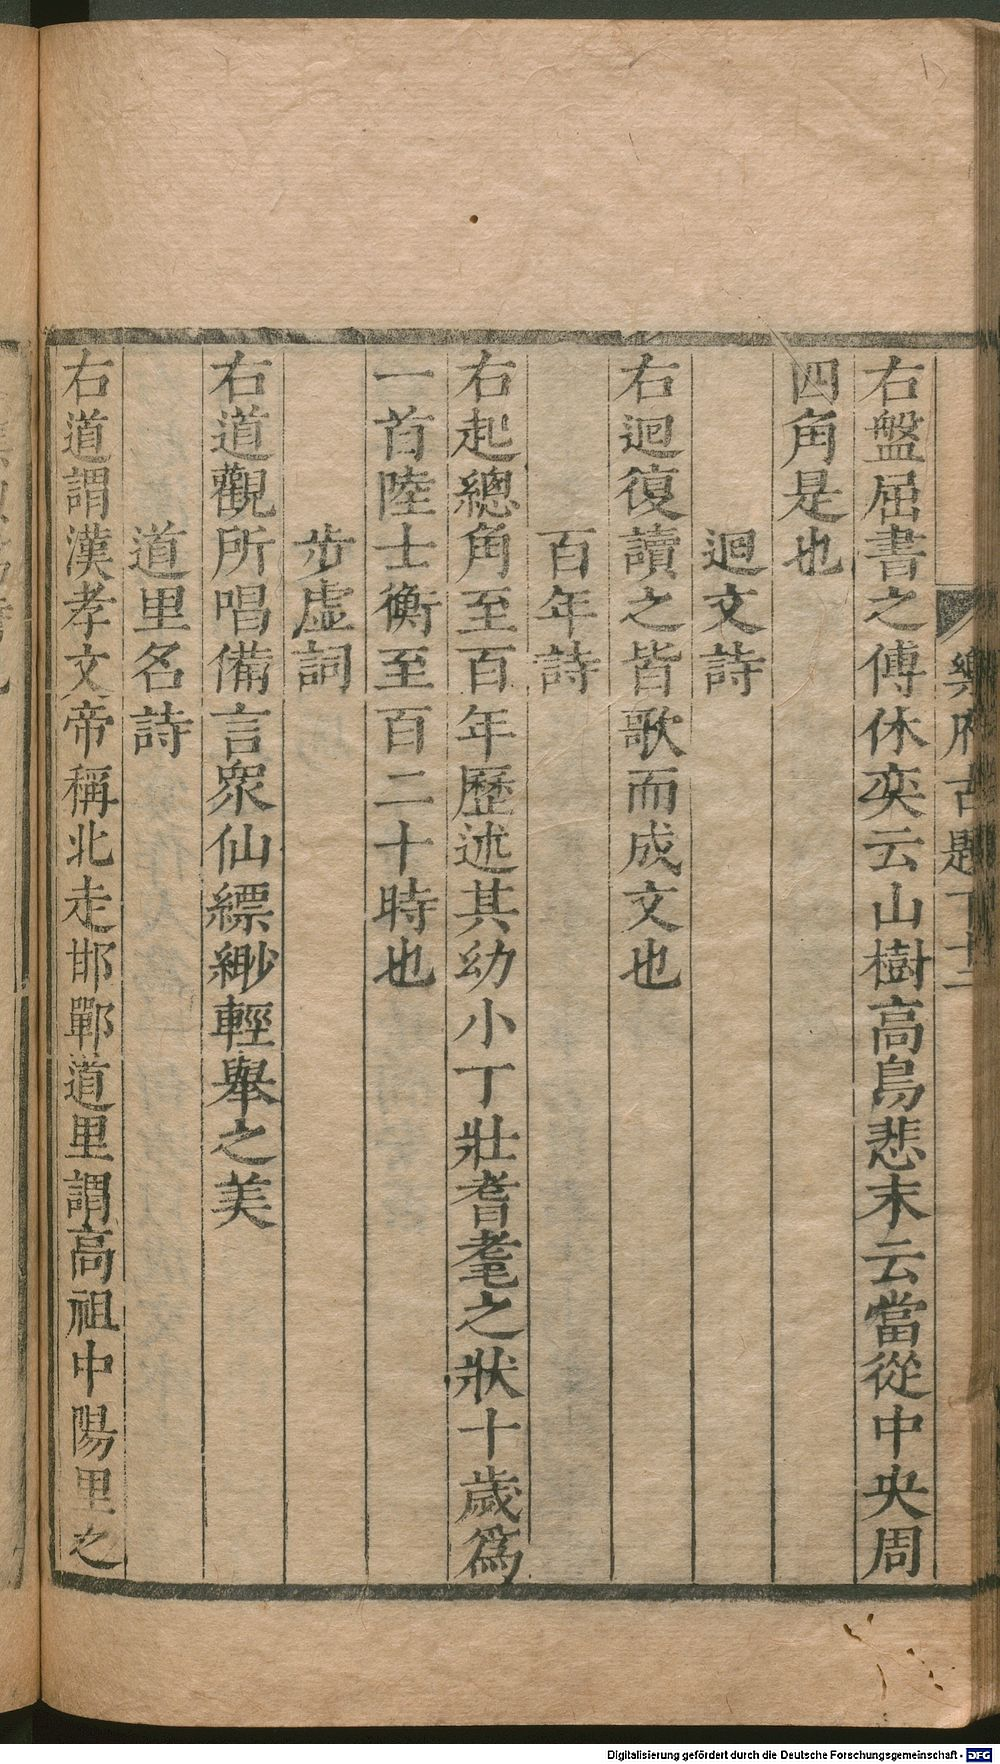 樂府古題下 十二
右盤屈書之傅休奕云山樹高鳥悲末云當從中央周
四角是也
迴文詩
右迴復讀之皆歌而成文也
百年詩
右起總角至百年歷述其幼小丁壯耆耄之狀十歲爲
一首陸士衡至百二十時也
步虛詞
右道觀所唱備言衆仙縹緲輕舉之美
道里名詩
右道謂漢孝文帝稱北走邯鄲道里謂高祖中陽里之
Digitalisierung gefördert durch die Deutsche Forschungsgemeinschaft - DFG